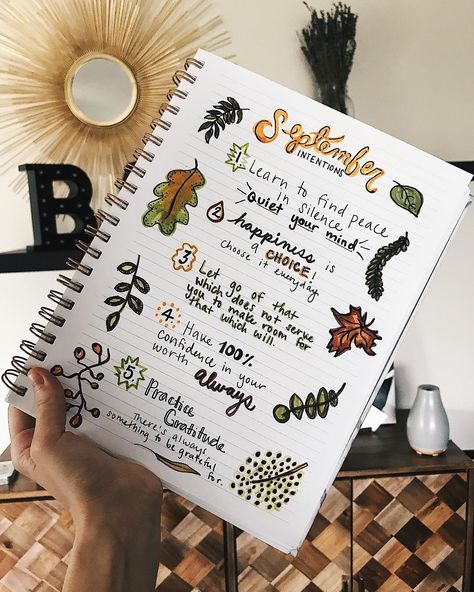 September
INTENTIONS
1. Learn to find peace
in silence.
quiet your mind
2. happiness is
a CHOICE!
choose it everyday
3. Let go of that
which does not serve
you to make room for
that which will.
4. Have 100%
confidence in your
worth always
5. Practice
Gratitude
There's always
something to be grateful
for.
B